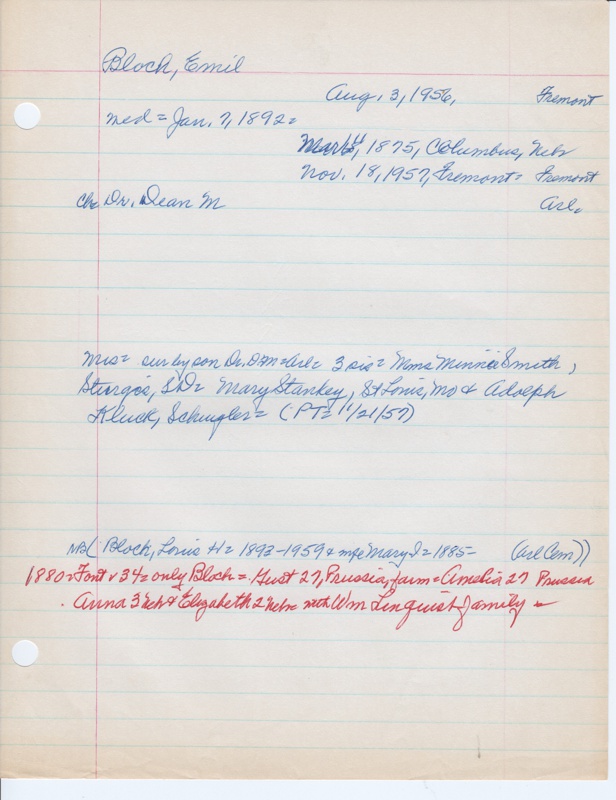 Bloch, Emil
Aug. 3, 1956, Fremont
med = Jan. 7, 1892 =
Mar 4, 1875, Columbus, Nebr
Nov. 18, 1957, Fremont = Fremont
Ch. Dr. Dean M Arl.
Mrs = sur by son Dr. D M = Arl = 3 sis = Mms Minnie Smith,
Sturgis, SD = Mary Stankey, St Louis, Mo & Adolph
Kluck, Schuyler = (PT = 11/21/57)
NB (Bloch, Louis H = 1893-1959 & Mary I = 1885- (Arl Cem))
1880 & 34 = only Bloch = Gust 27, Prussia, farm = Amelia 27 Prussia
Anna 3 neb & Elizabeth 2 nebr = with Wm Linquist family =